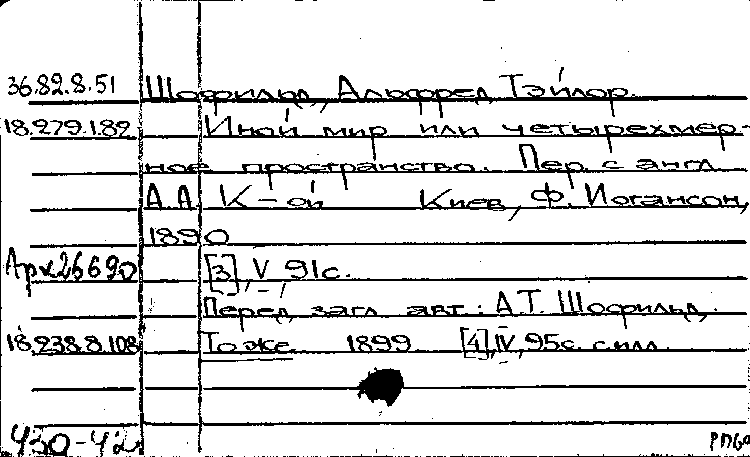 36.82.8.51 Шофильд, Альфред Тэйлор.
18.279.1.82 Иной мир или четырехмер-
ное пространство. Пер. с англ.
А.А. К-ой Киев, Ф. Иогансон,
1890
Арх26690 [3], V, 91с.
Перед загл. авт.: А.Т. Шофильд.
18.238.8.108 То же 1899 [4], IV, 95с. с илл.
430-42